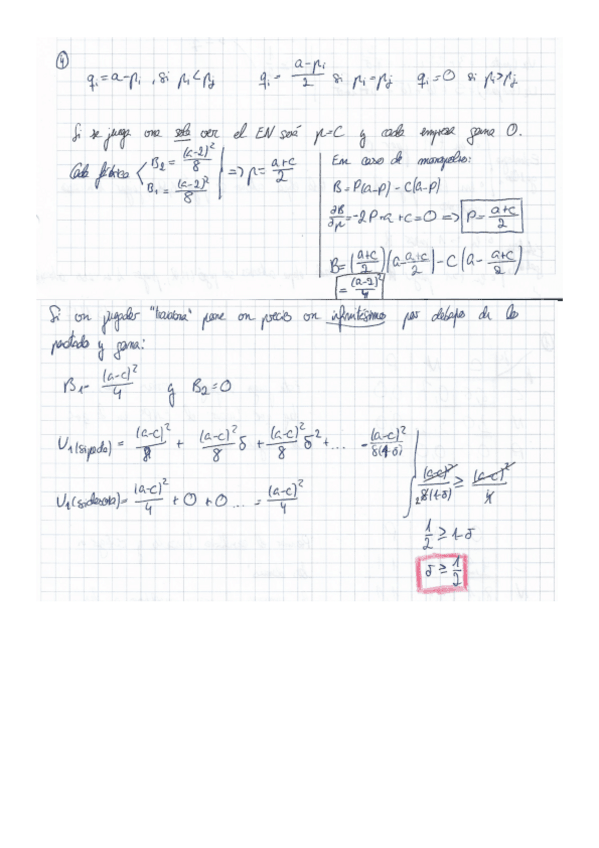 ④
qi = a-pi, si pi<pj qi = (a-pi)/2 si pi=pj qi=0 si pi>pj
Si se juega una sola vez el EN será p=c y cada empresa gana 0.
Cada fábrica B2 = (a-2)²/8 B1 = (a-2)²/8 => p = (a+c)/2
En caso de monopolio:
B = P(a-p) - C(a-p)
∂B/∂p = -2P+a+c = 0 => P = (a+c)/2
B = ((a+c)/2)(a - (a+c)/2) - C(a - (a+c)/2)
= (a-2)²/4
Si un jugador "traiciona" pone un precio un infinitésimo por debajo de lo
pactado y gana:
B1 = (a-c)²/4 y B2=0
U1(si pacta) = (a-c)²/8 + (a-c)²/8 δ + (a-c)²/8 δ² + ... = (a-c)²/8(1-δ)
U1(si desvía) = (a-c)²/4 + 0 + 0 ... = (a-c)²/4
(a-c)²/8(1-δ) ≥ (a-c)²/4
1/2 ≥ 1-δ
δ ≥ 1/2